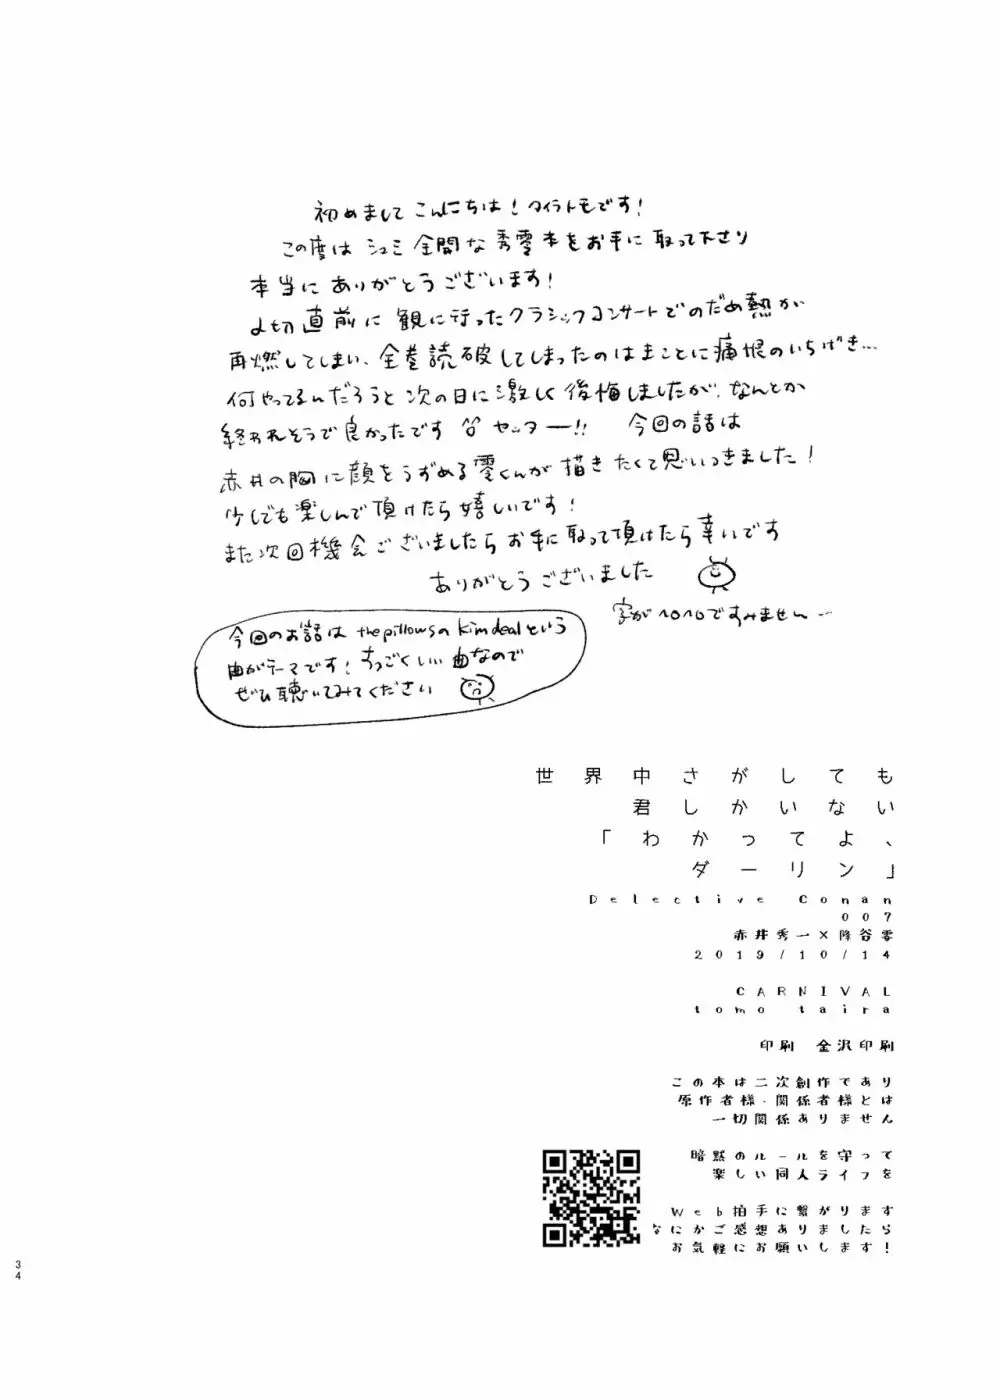 初めまして こんにちは！タイラトモです！
この度は シュミ 全開な 秀零本を お手に 取って下さり
本当に ありがとうございます！
〆切 直前に 観に行った クラシックコンサートで のだめ熱が
再燃してしまい、全巻読破してしまったのは まことに 痛恨のいちげき…
何やってるんだろうと 次の日に 激しく 後悔しましたが、なんとか
終われそうで 良かったです ヤッター!! 今回の話は
赤井の胸に 顔をうずめる 零くんが 描きたくて 思いつきました！
少しでも 楽しんで 頂けたら 嬉しいです！
また次回機会ございましたら お手に取って頂けたら 幸いです
ありがとう ございました
字が ヘロヘロですみません…
今回のお話は the pillowsの kim dealという
曲がテーマです！すっごくいい 曲なので
ぜひ 聴いてみてください
世界中さがしても
君しかいない
「わかってよ、
ダーリン」
Detective Conan
007
赤井秀一×降谷零
2019/10/14
CARNIVAL
tomo taira
印刷 金沢印刷
この本は二次創作であり
原作者様・関係者様とは
一切関係ありません
暗黙のルールを守って
楽しい同人ライフを
Web拍手に繋がります
なにかご感想ありましたら
お気軽にお願いします！
34